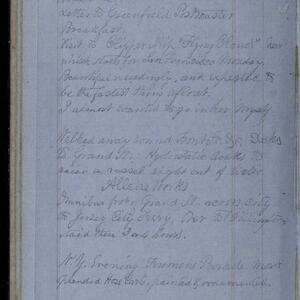 Letter to Greenfield Postmaster
Breakfast.
Visit to Clipper Ship "Flying Cloud"
which starts for San Francisco Monday.
Beautiful exceedingly, and expected to
be the fastest thing afloat.
I almost wanted to go in her myself
Walked away round Docks
to Grand St. Hydrostatic docks to
raise a vessel right out of water
Allaire Works
Omnibus from Grand St. across City
to Jersey City Ferry,
N.Y. Evening Firemen's Parade most
splendid Hose Carts, painted & ornamented.